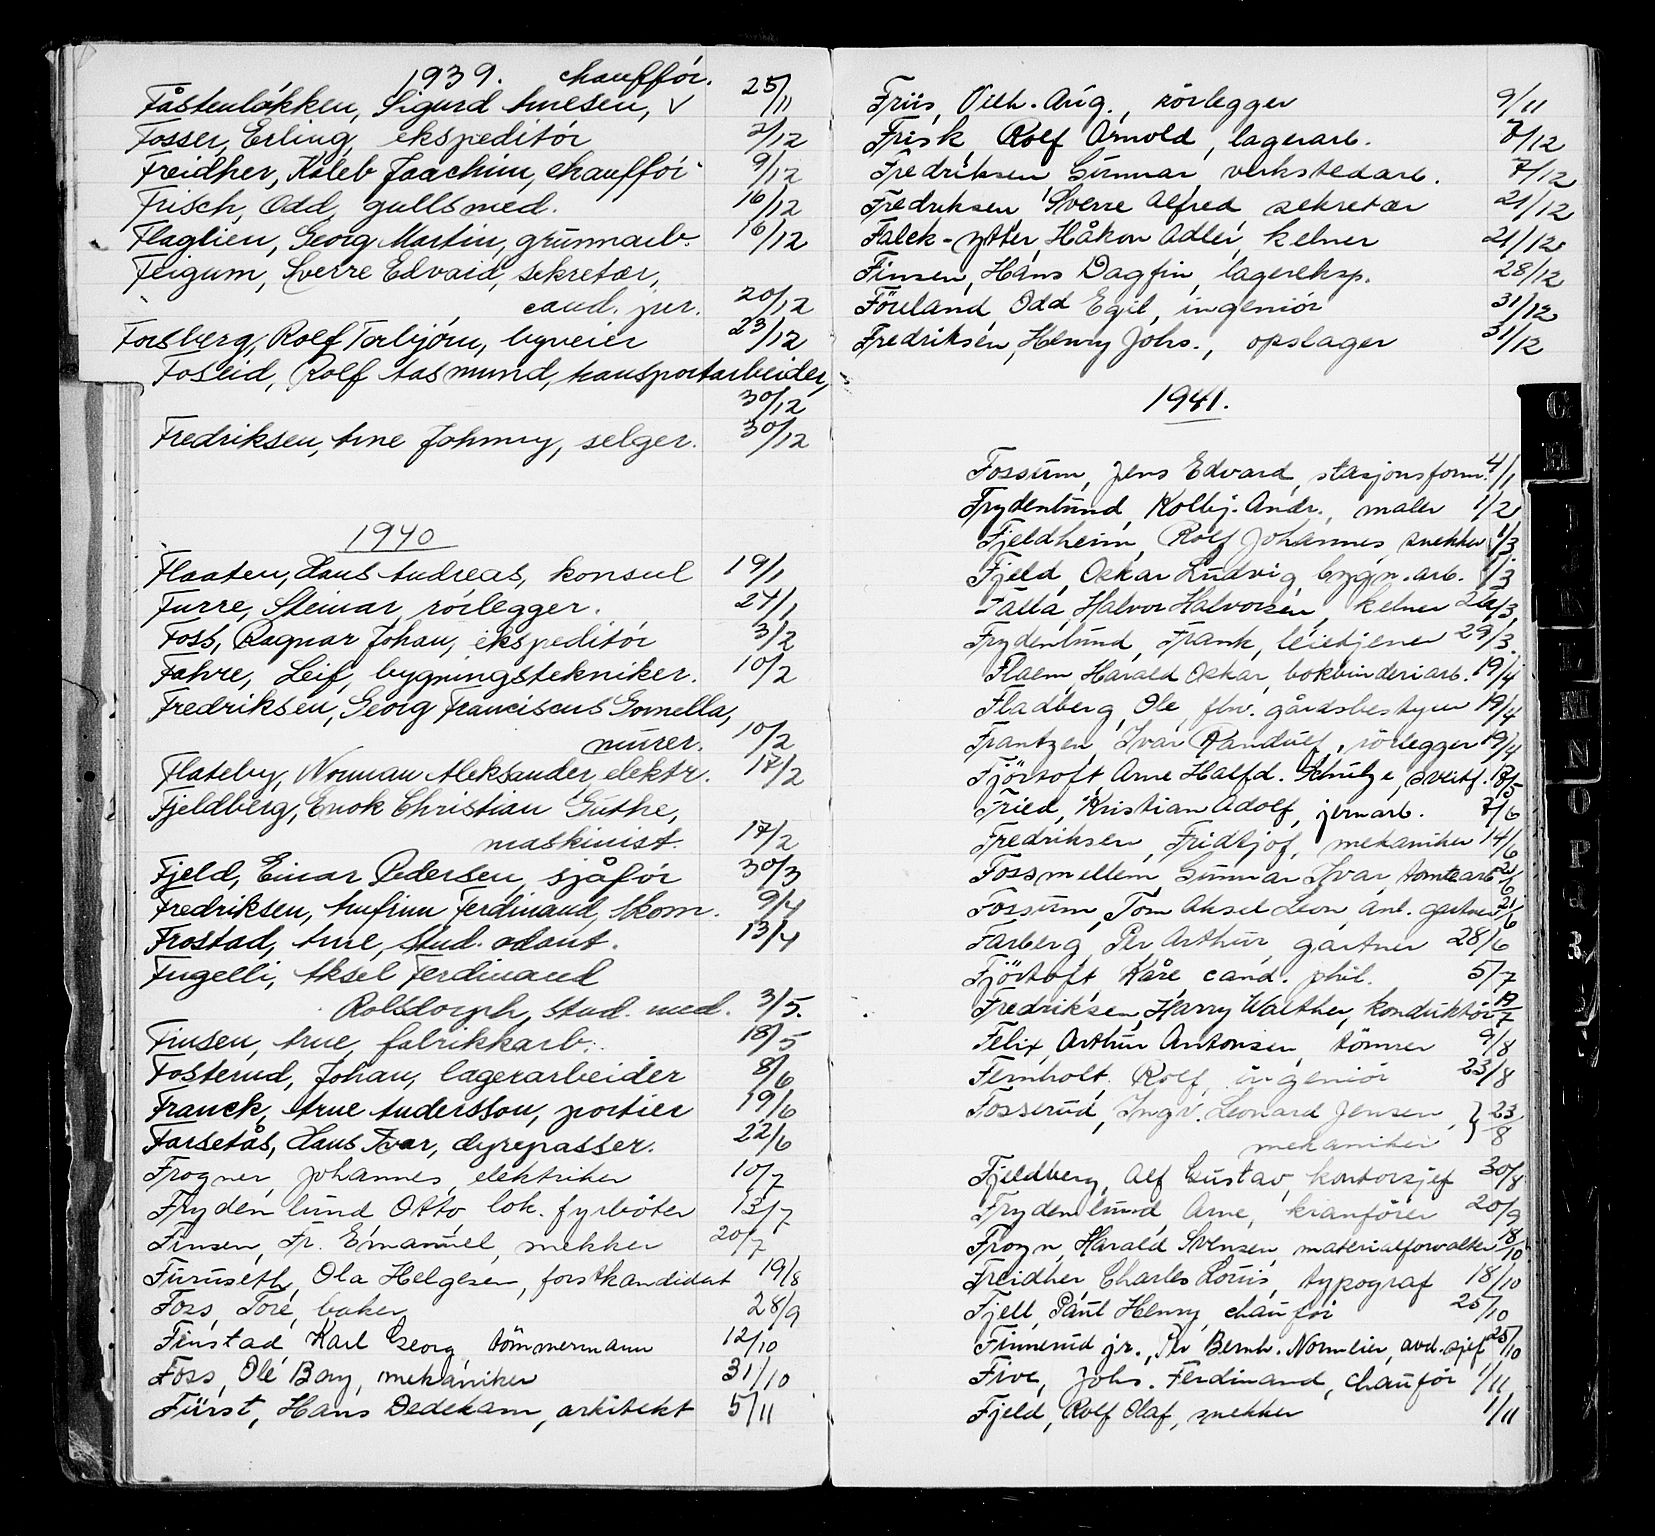 1939. chauffør.
Fåstenløkken, Sigurd Arnesen, √ 25/11
Fosser, Erling, ekspeditör 2/12
Freidher, Kaleb Joachim, chauffør 9/12
Frisch, Odd, gullsmed. 16/12
Flaglien, Georg Martin, grunnarb. 16/12
Feigum, Sverre Edvard, sekretær,
cand. jur. 20/12
Forsberg, Rolf Torbjørn, byveier 23/12
Foseid, Rolf Aasmund, transportarbeider,
30/12
Fredriksen, Arne Johnny, selger. 30/12
1940
Flaaten, Hans Andreas, konsul 19/1
Furre, Steinar, rörlegger. 24/1
Foss, Ragnar Johan, ekspeditör 3/2
Fahre, Leif, bygningstekniker. 10/2
Fredriksen, Georg Franciscus Gomella,
murer. 10/2
Flateby, Norman Aleksander, elektr. 17/2
Fjeldberg, Enok Christian Guthe,
maskinist. 17/2
Fjeld, Einar Pedersen, sjåför 30/3
Fredriksen, Arnfinn Ferdinand, skom. 9/4
Frostad, Arne, stud. odont. 13/4
Fugelli, Aksel Ferdinand
Rolsdorph, stud. med. 3/5.
Finsen, Arne, fabrikkarb. 18/5
Fosterud, Johan, lagerarbeider 8/6
Franck, Arne Andersson, portier 19/6
Farsetås, Hans Ivar, dyrepasser. 22/6
Frogner, Johannes, elektriker 10/7
Frydenlund Otto lok. fyrböter 13/7
Finsen, Fr. Emanuel, snekker 20/7
Furuseth, Ola Helgesen, forstkandidat 19/8
Foss, Tore, baker 28/9
Finstad Karl Georg, tömmermann 12/10
Foss, Ole Bany, mekaniker 31/10
Fürst, Hans Dedekam, arkitekt 5/11
Friis, Vilh. Aug., rörlegger 9/11
Frisk, Rolf Arnold, lagerarb. 7/12
Fredriksen Gunnar verkstedarb. 7/12
Fredriksen, Sverre Alfred, sekretær 21/12
Falck-Ytter, Håkon Adler, kelner 21/12
Finsen, Hans Dagfin, lagereksp. 28/12
Föreland Odd Egil, ingeniör 31/12
Fredriksen, Henry Johs., opslager 31/12
1941.
Fossum, Jens Edvard, stasjonsform. 4/1
Frydenlund, Kolbj. Andr., maler 1/2
Fjeldheim, Rolf Johannes snekker 1/3
Fjeld, Oskar Ludvig bygn.arb. 1/3
Falla, Halvor Halvorsen, kelner 22/3
Frydenlund, Frank, leietjener 29/3.
Flaem, Harald Oskar, bokbinderiarb. 19/4
Fladberg, Ole, fhv. gårdsbestyrer 19/4
Frantzen, Ivar Randulf, rörlegger 19/4
Fjörtoft, Arne Halfd. Schulze,
Fried, Kristian Adolf, jernarb. 7/6
Fredriksen, Fridtjof, mekaniker 14/6
Fossmellem Gunnar Ivar, tomtearb 21/6
Fossum, Tom Aksel Leon, anl. gartner 21/6
Farberg, Per Arthur, gartner 28/6
Fjörtoft Kåre cand. phil. 5/7
Fredriksen, Harry Walther, konduktör 19/7
Felix, Arthur Antonsen, tömrer 9/8
Fernholt, Rolf, ingeniör 23/8
Fosserud, Ingv. Leonard Jensen, } 23/8
mekaniker
Fjeldberg, Alf Gustav, kontorsjef 30/8
Frydenlund Arne, kranförer 20/9
Frogn, Harald Svensen, materialforvalter 18/10
Freidher Charles Louis, typograf 18/10
Fjell, Paul Henry, chauför 25/10
Finnerud jr., Per Bernh. Normleier, avd.sjef 25/10
Five, Johs. Ferdinand, chauför 1/11
Fjeld, Rolf Olaf, snekker 1/11
G
H
I
K
L
M
N
O
P